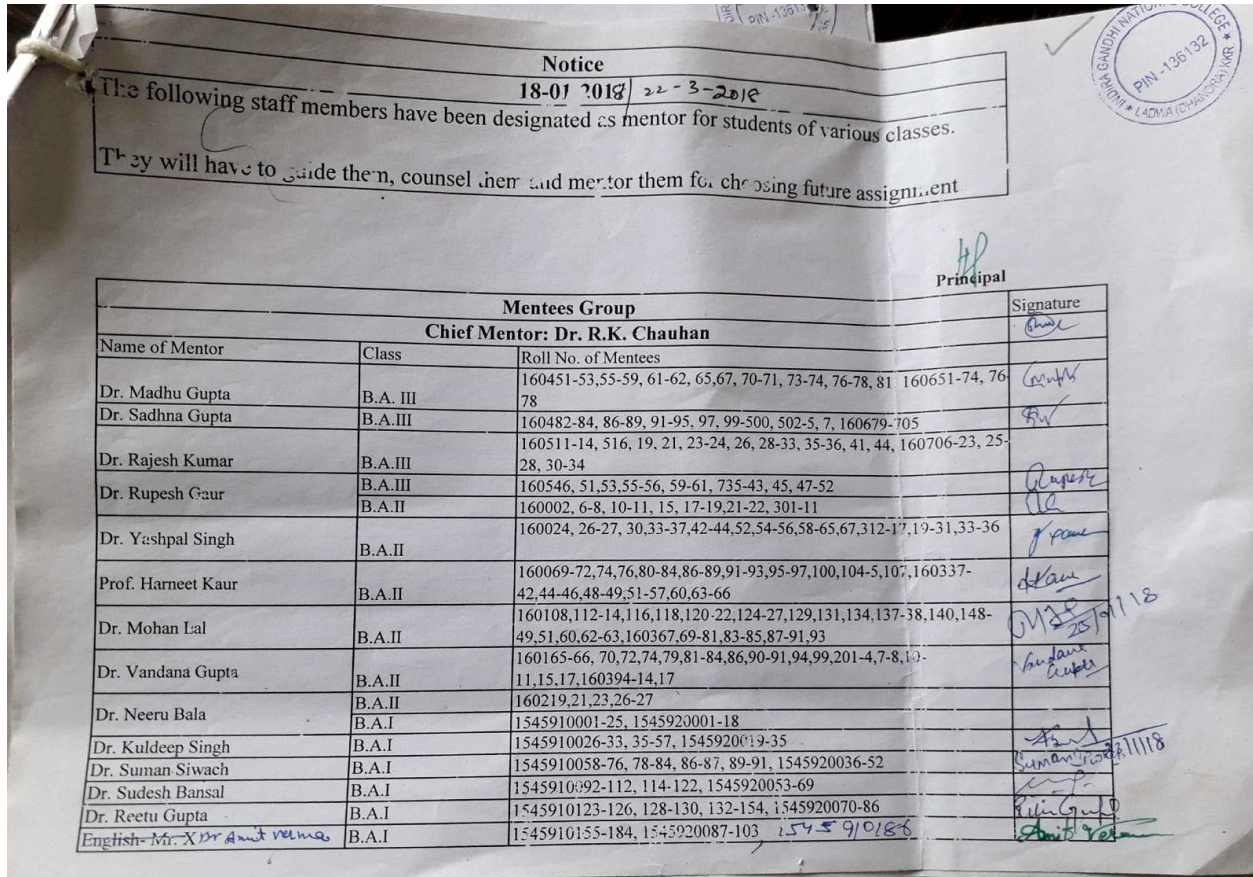 PIN-136132
INDIRA GANDHI NATIONAL COLLEGE * LADWA (DHANORA) KKR *
PIN-136132
Notice
18-01 2018 22-3-2018
The following staff members have been designated as mentor for students of various classes.
They will have to guide them, counsel them and mentor them for choosing future assignment
Principal
Mentees Group Signature
Chief Mentor: Dr. R.K. Chauhan
Name of Mentor Class Roll No. of Mentees
Dr. Madhu Gupta B.A. III 160451-53,55-59, 61-62, 65,67, 70-71, 73-74, 76-78, 81 160651-74, 76-
78
Dr. Sadhna Gupta B.A.III 160482-84, 86-89, 91-95, 97, 99-500, 502-5, 7, 160679-705
Dr. Rajesh Kumar B.A.III 160511-14, 516, 19, 21, 23-24, 26, 28-33, 35-36, 41, 44, 160706-23, 25-
28, 30-34
Dr. Rupesh Gaur B.A.III 160546, 51,53,55-56, 59-61, 735-43, 45, 47-52 Rupesh
B.A.II 160002, 6-8, 10-11, 15, 17-19,21-22, 301-11
Dr. Yashpal Singh B.A.II 160024, 26-27, 30,33-37,42-44,52,54-56,58-65,67,312-17,19-31,33-36
Prof. Harneet Kaur B.A.II 160069-72,74,76,80-84,86-89,91-93,95-97,100,104-5,107,160337-
42,44-46,48-49,51-57,60,63-66
Dr. Mohan Lal B.A.II 160108,112-14,116,118,120-22,124-27,129,131,134,137-38,140,148-
49,51,60,62-63,160367,69-81,83-85,87-91,93
Dr. Vandana Gupta B.A.II 160165-66, 70,72,74,79,81-84,86,90-91,94,99,201-4,7-8,10-
11,15,17,160394-14,17 Vandana Gupta
Dr. Neeru Bala B.A.II 160219,21,23,26-27
B.A.I 1545910001-25, 1545920001-18
Dr. Kuldeep Singh B.A.I 1545910026-33, 35-57, 1545920019-35
Dr. Suman Siwach B.A.I 1545910058-76, 78-84, 86-87, 89-91, 1545920036-52 Suman
Dr. Sudesh Bansal B.A.I 1545910092-112, 114-122, 1545920053-69
Dr. Reetu Gupta B.A.I 1545910123-126, 128-130, 132-154, 1545920070-86
English- Mr. X Dr Amit Verma B.A.I 1545910155-184, 1545920087-103 1545910186 Amit Verma